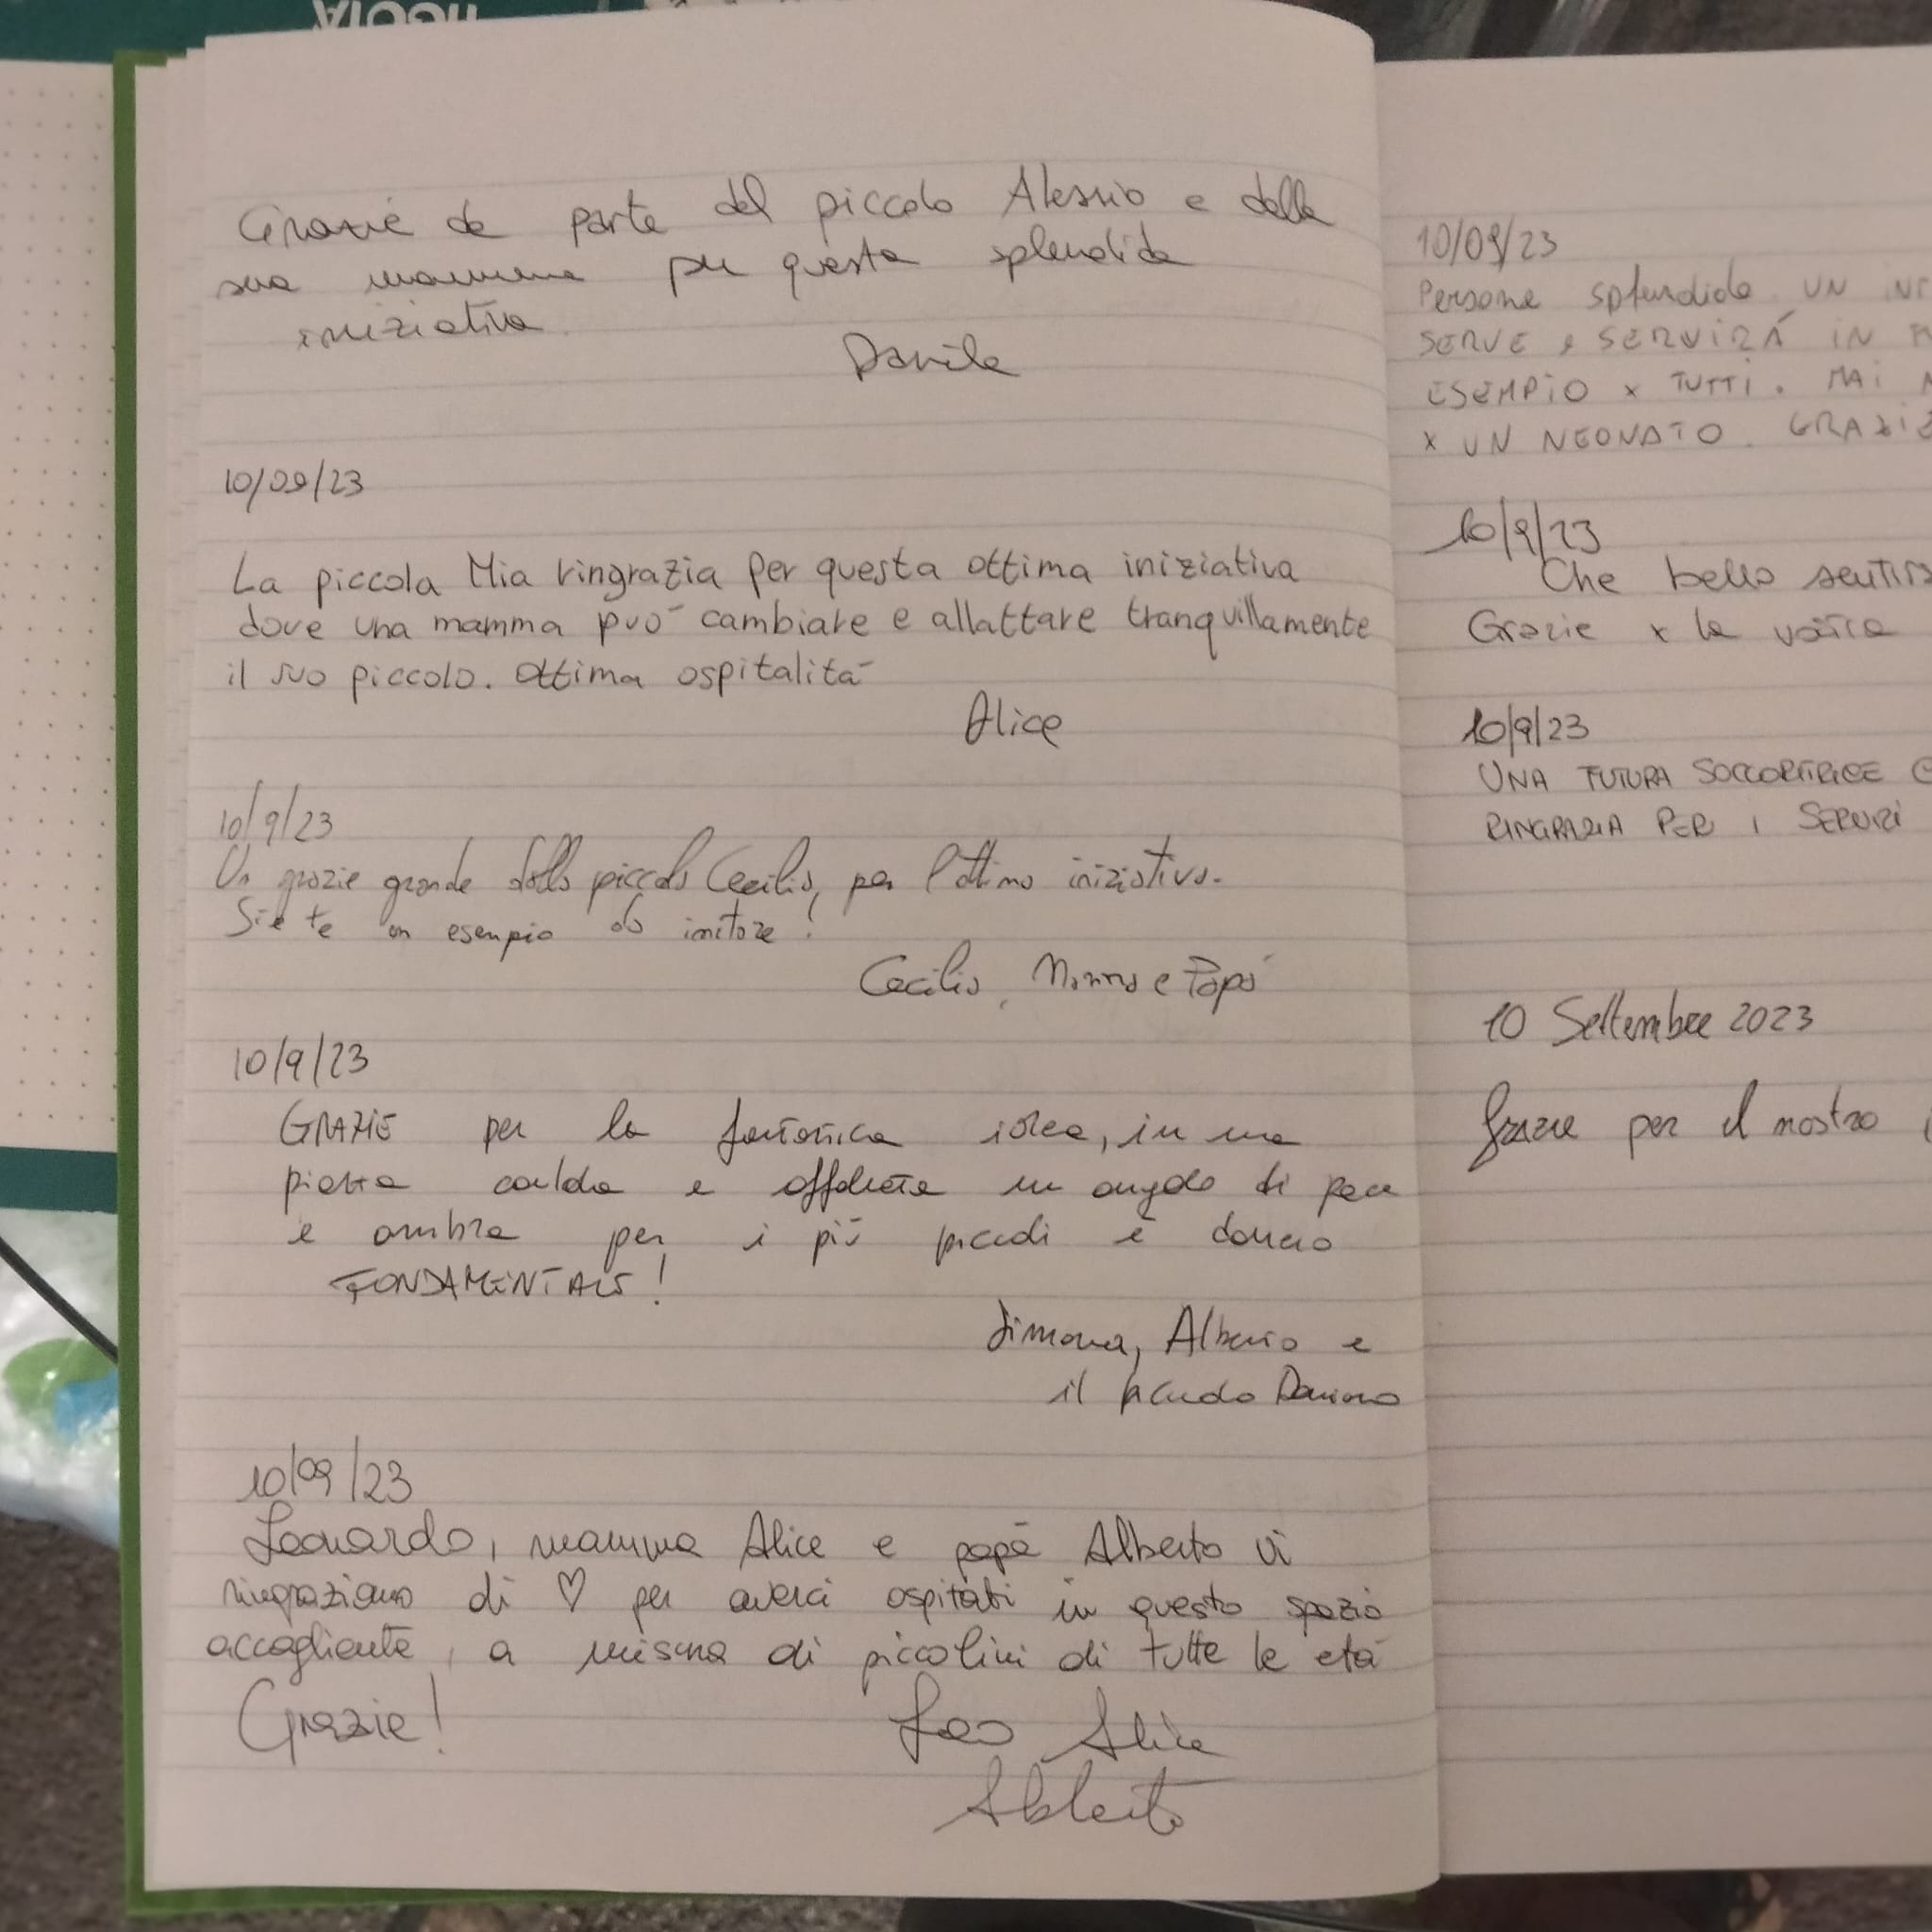 Grazie da parte del piccolo Alessio e della
sua mamma per questa splendida
iniziativa
10/09/23
La piccola Mia ringrazia per questa ottima iniziativa
dove una mamma può cambiare e allattare tranquillamente
il suo piccolo. Ottima ospitalità
Alice
10/9/23
Un grazie grande dalla piccola Cecilia, per l'ottima iniziativa.
Siete un esempio da imitare!
Cecilia, Mamma e Papà
10/9/23
GRAZIE per la fantastica idea, in una
piazza calda e affollata un angolo di pace
e ombra per i più piccoli è davvero
FONDAMENTALE!
Simona, Alberto e
il piccolo
10/09/23
Leonardo, mamma Alice e papà Alberto vi
ringraziano di ♡ per averci ospitati in questo spazio
accogliente, a misura di piccolini di tutte le età
Grazie!
Leo Alice
Alberto
10/09/23
Persone splendide. UN
SERVE e SERVIRÀ IN
ESEMPIO x TUTTI. MAI
x UN NEONATO. GRAZIE
10/9/23
Che bello
Grazie x la vostra
10/9/23
UNA FUTURA SOCCORRITRICE
RINGRAZIA PER I SERVIZI
10 Settembre 2023
Grazie per il nostro